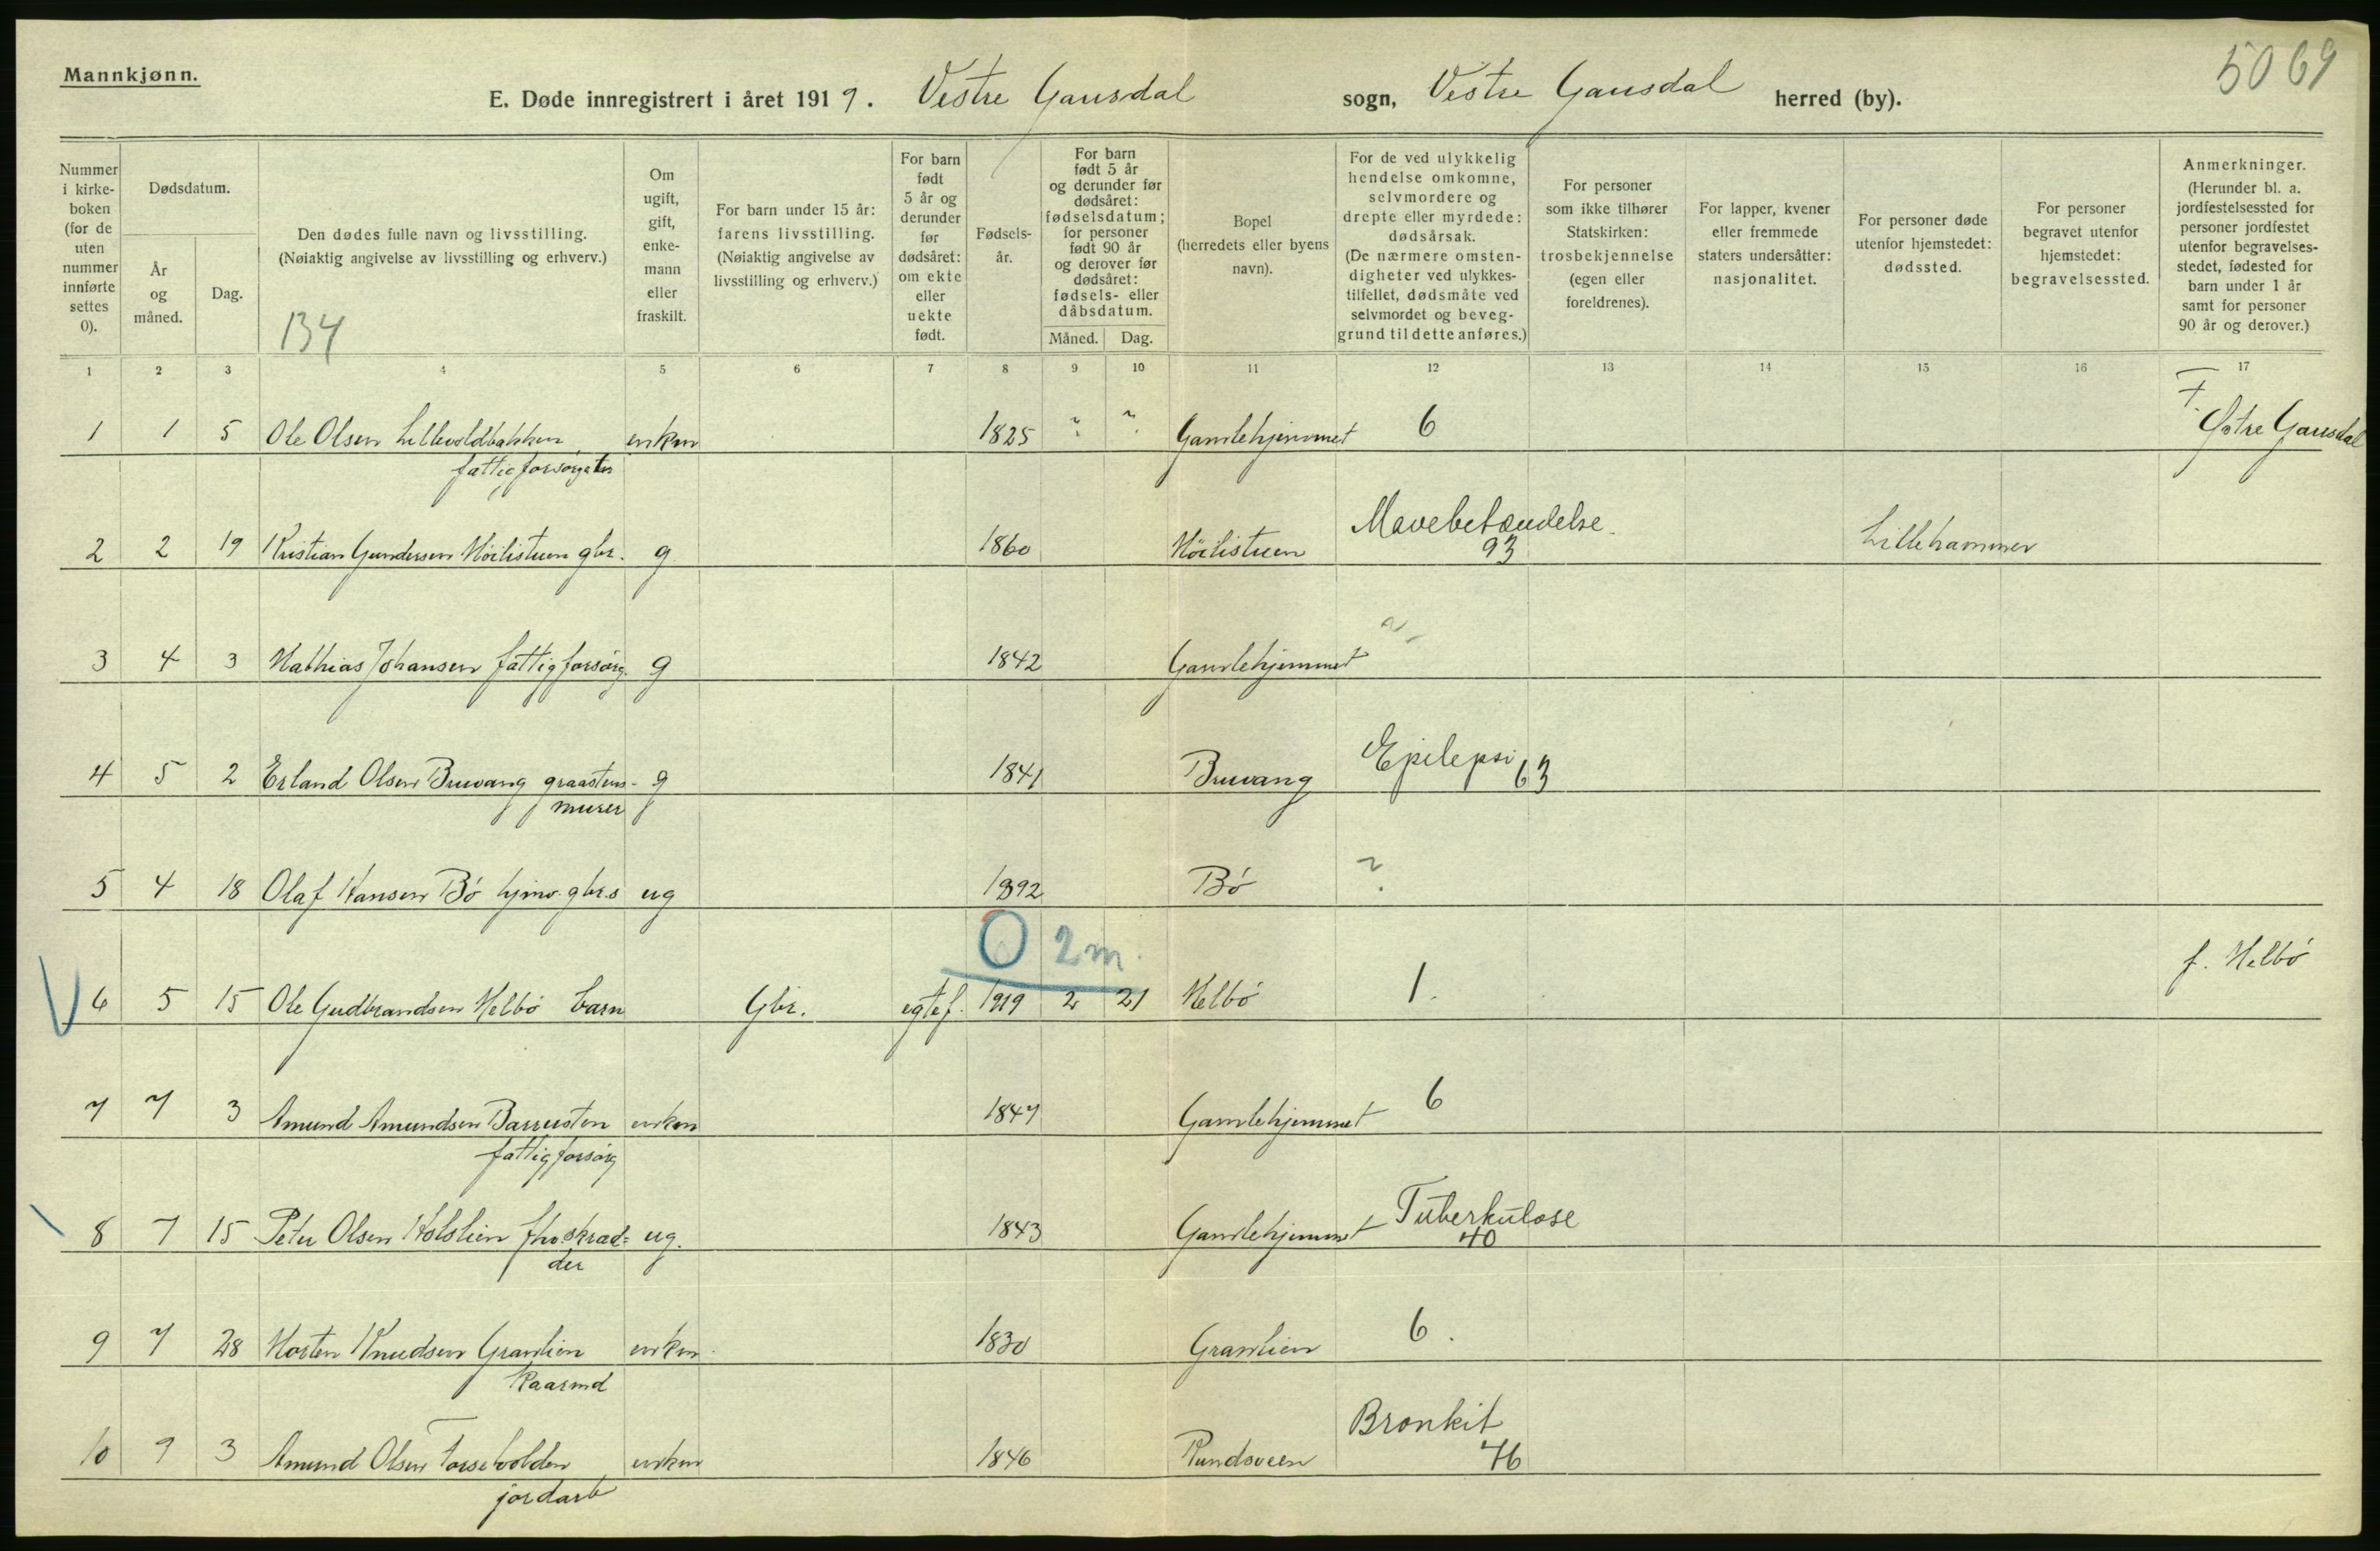 Mannkjønn.
5069
E. Døde innregistrert i året 1919. Vestre Gausdal sogn, Vestre Gausdal herred (by).
Nummer i kirke- boken (for de uten nummer innførte settes 0).
Dødsdatum.
År og måned.
Dag.
Den dødes fulle navn og livsstilling.
(Nøiaktig angivelse av livsstilling og erhverv.)
134
Om ugift, gift, enke- mann eller fraskilt.
For barn under 15 år: farens livsstilling. (Nøiaktig angivelse av livsstilling og erhverv.)
For barn født 5 år og derunder før dødsåret: om ekte eller uekte født.
Fødsels- år.
For barn født 5 år og derunder før dødsåret: fødselsdatum; for personer født 90 år og derover før dødsåret: fødsels- eller dåbsdatum.
Måned. Dag.
Bopel (herredets eller byens navn).
For de ved ulykkelig hendelse omkomne, selvmordere og drepte eller myrdede: dødsårsak. (De nærmere omsten- digheter ved ulykkes- tilfellet, dødsmåte ved selvmordet og beveg- grund til dette anføres.)
For personer som ikke tilhører Statskirken: trosbekjennelse (egen eller foreldrenes).
For lapper, kvener eller fremmede staters undersåtter: nasjonalitet.
For personer døde utenfor hjemstedet: dødssted.
For personer begravet utenfor hjemstedet: begravelsessted.
Anmerkninger. (Herunder bl. a. jordfestelsessted for personer jordfestet utenfor begravelses- stedet, fødested for barn under 1 år samt for personer 90 år og derover.)
1 2 3 4 5 6 7 8 9 10 11 12 13 14 15 16 17
1 1 5 Ole Olsen Lillevoldbakken enkem 1825 ? ? Gamlehjemmet 6 F. Østre Gausdal
fattigforsørget
2 2 19 Kristian Gundersen Höilistuen gbr. g 1860 Höilistuen Mavebetændelse 93 Lillehammer
3 4 3 Mathias Johansen fattigforsörg. g 1842 Gamlehjemmet ?
4 5 2 Erland Olsen Bruvang graastens- g 1841 Bruvang Epilepsi 63
murer
5 4 18 Olaf Hansen Bö hjmv. gbr.s ug 1892 Bö ?
0 2 m.
6 5 15 Ole Gudbrandsen Helbö barn Gbr. egtef. 1919 2 21 Helbö 1. f. Helbö
7 7 3 Amund Amundsen Barrusten enkem 1847 Gamlehjemmet 6
fattigforsörg
8 7 15 Peter Olsen Holslien fhv. skræd= ug. 1843 Gamlehjemmet Tuberkulose 40
der
9 7 28 Morten Knudsen Granlien enkem. 1830 Granlien 6.
Kaarmd
10 9 3 Amund Olsen enkem 1846 Rundsveen Bronkit 76
jordarb